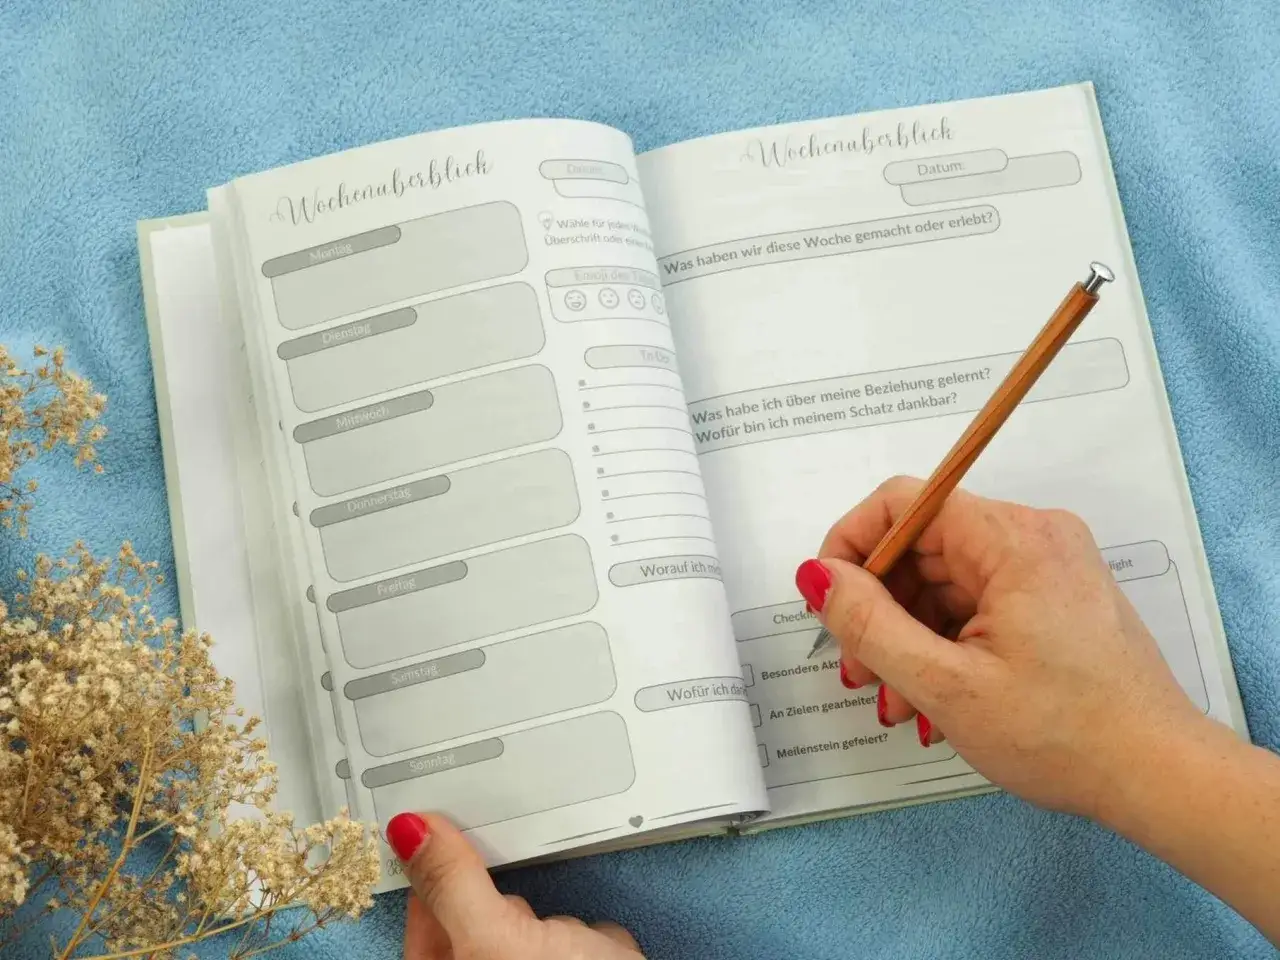 Wochenuberblick
Datum:
Wähle für jeden
Überschrift oder einen
Montag
Emoji des
Dienstag
To Do
Mittwoch
Donnerstag
Freitag
Worauf ich
Samstag
Wofür ich
Sonntag
Wochenuberblick
Datum:
Was haben wir diese Woche gemacht oder erlebt?
Was habe ich über meine Beziehung gelernt?
Wofür bin ich meinem Schatz dankbar?
light
Besondere
An Zielen gearbeitet?
Meilenstein gefeiert?